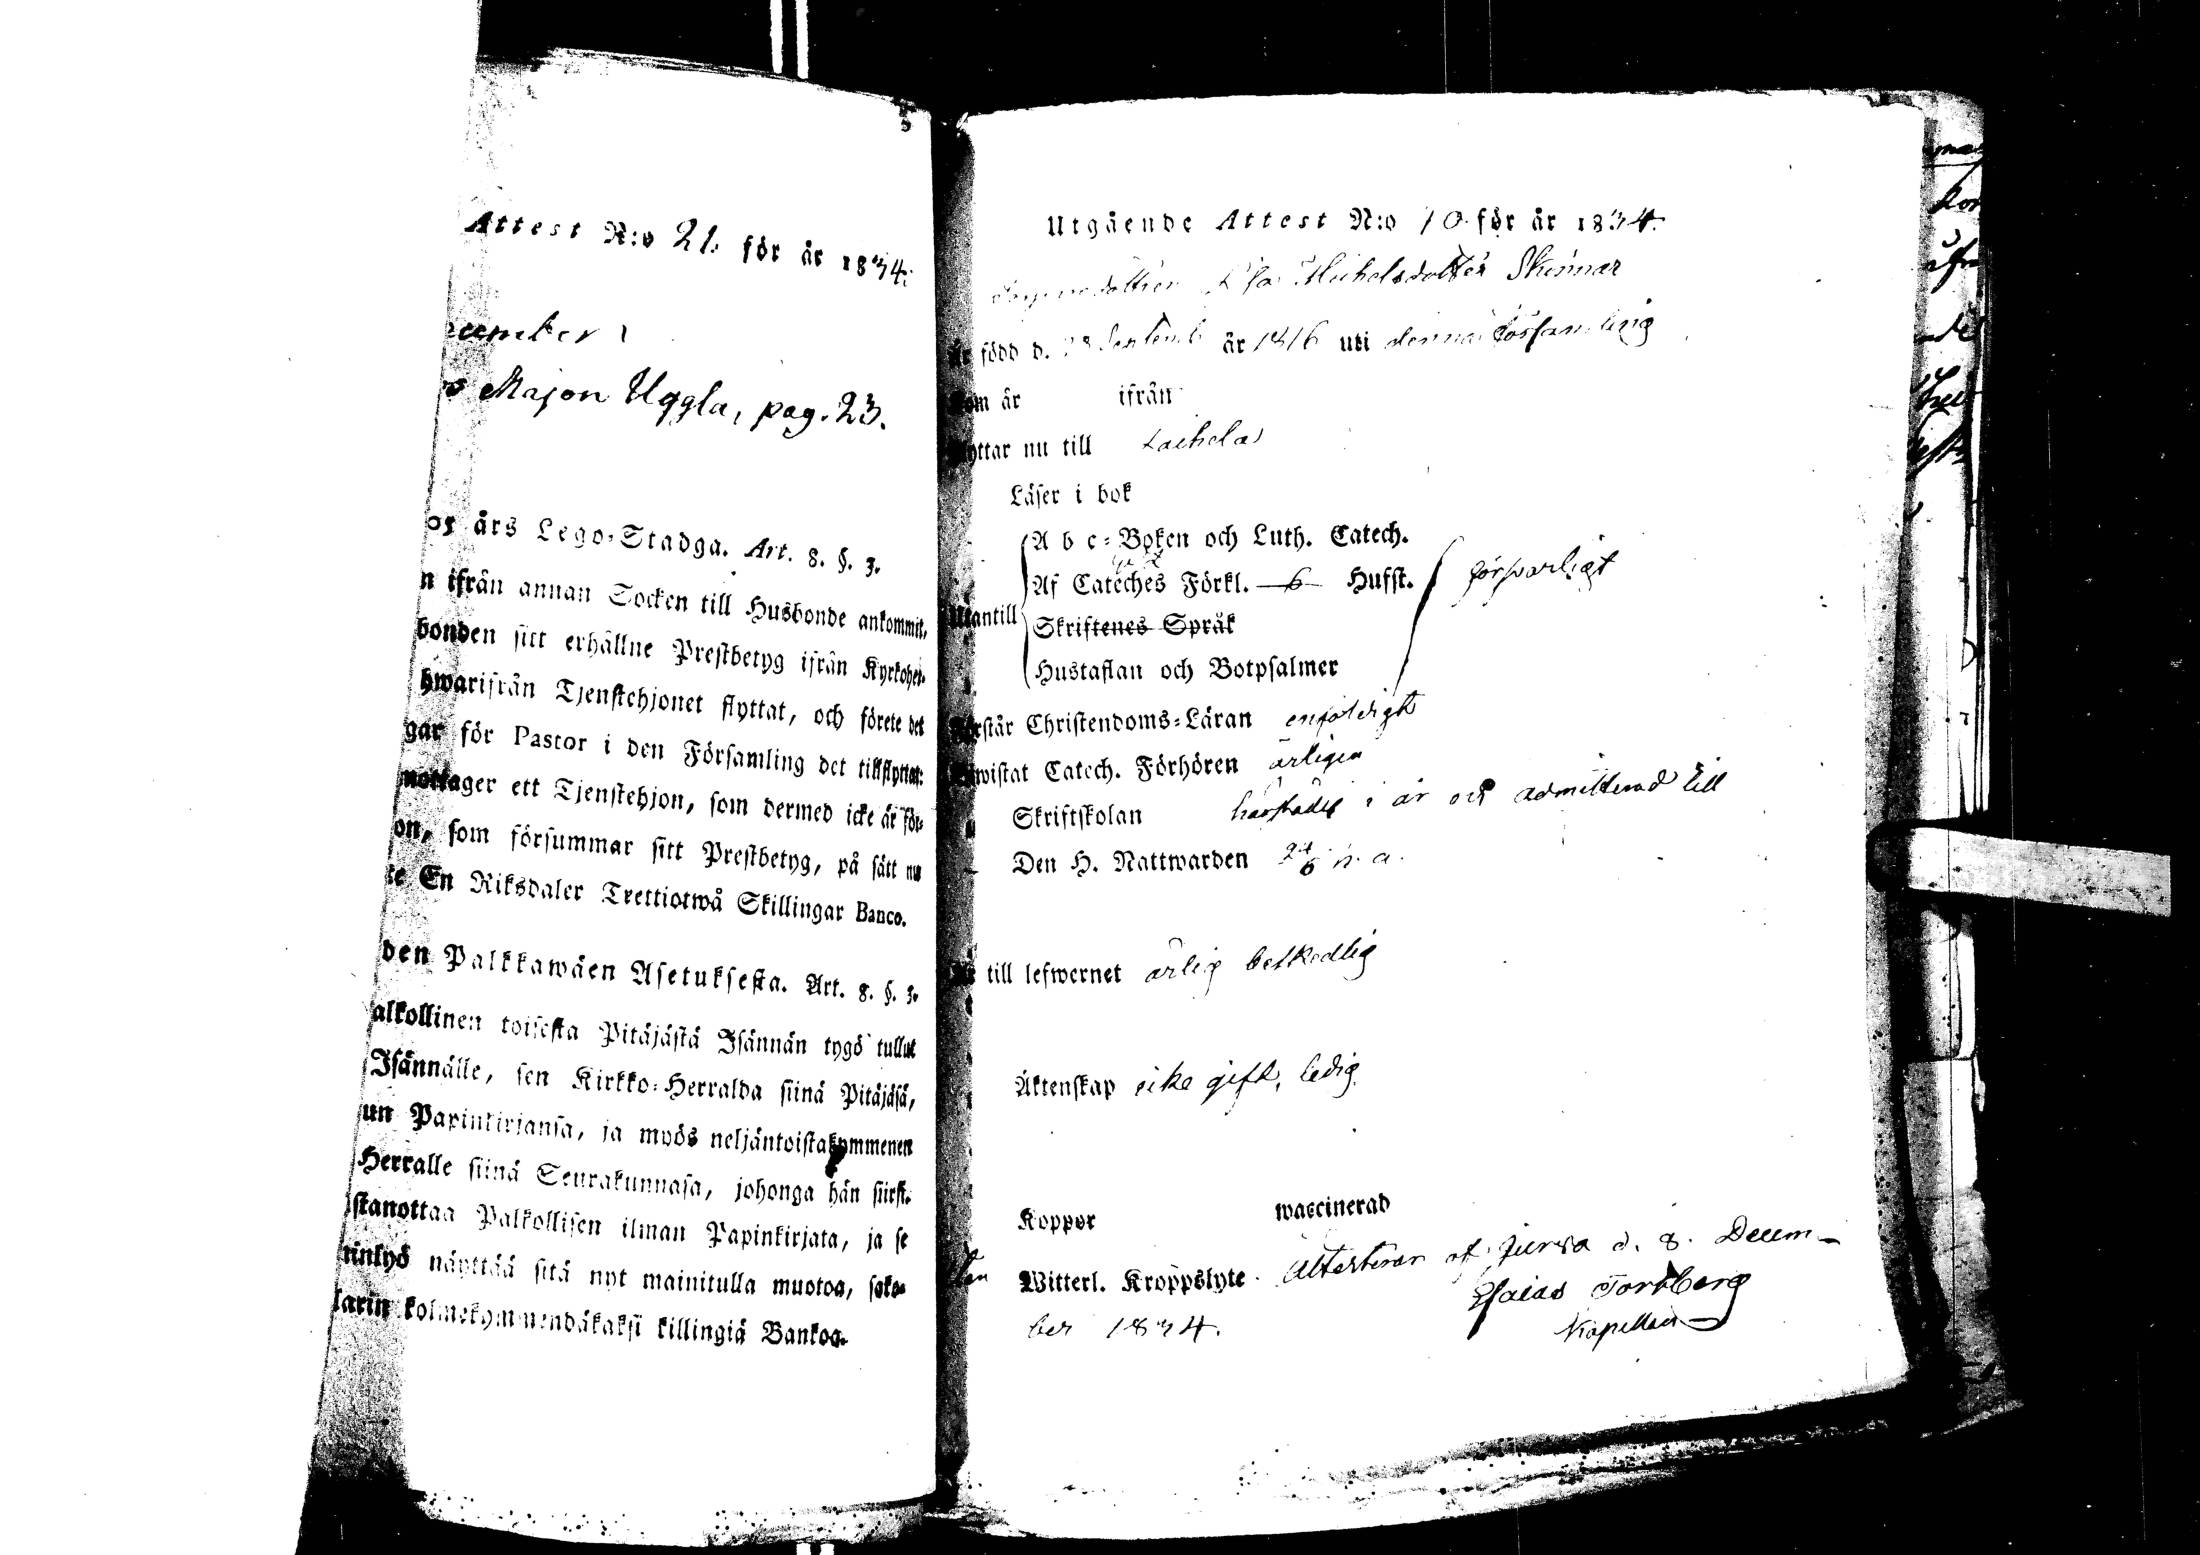 Attest N:o 21. för år 1834.
ecember
Major Uggla, pag. 23.
års Lego-Stadga. Art. 8. §. 3.
n ifrån annan Socken till Husbonde ankommit,
bonden sitt erhållne Prestbetyg ifrån Kyrkoher-
hwarifrån Tjenstehjonet flyttat, och förete det
gar för Pastor i den Församling det tillflyttat:
mottager ett Tjenstehjon, som dermed icke är för-
on, som försummar sitt Prestbetyg, på sätt nu
te En Riksdaler Trettiotwå Skillingar Banco.
den Palkkawäen Asetuksesta. Art. 8. §. 3.
alkollinen toisesta Pitäjästä Isännän tygö tullut
Isännälle, sen Kirkko-Herralda siinä Pitäjäsä,
un Papinkirjansa, ja myös neljäntoistakymmenen
Herralle siinä Seurakunnasa, johonga hän siirst-
stanottaa Palkollisen ilman Papinkirjata, ja se
rinlyö näyttää sitä nyt mainitulla muotoa, sako-
larin kolmekymmendäkaksi killingiä Bankoa.
Utgående Attest N:o 10 för år 1834.
Michelsdotter Skinnar
är född d. 28 Septemb. år 1816 uti denna församling
kom år ifrån
flyttar nu till Laihela
Läser i bok
A b c-Boken och Luth. Catech.
Af Cateches Förkl. 6 Hufst. försvarligt
Utantill
Skriftenes Språk
Hustaflan och Botpsalmer
Förstår Christendoms-Läran enfoldigt
Bewistat Catech. Förhören årligen
Skriftskolan härstädes i år och admitterad till
Den H. Nattwarden n. a.
Är till lefwernet ärlig beskedlig
Äktenskap icke gift, ledig
Koppor waccinerad
Witterl. Kroppslyte. Attesterar af Jurva d. 8. Decem-
ber 1834. Esaias Forsberg
Kapellan